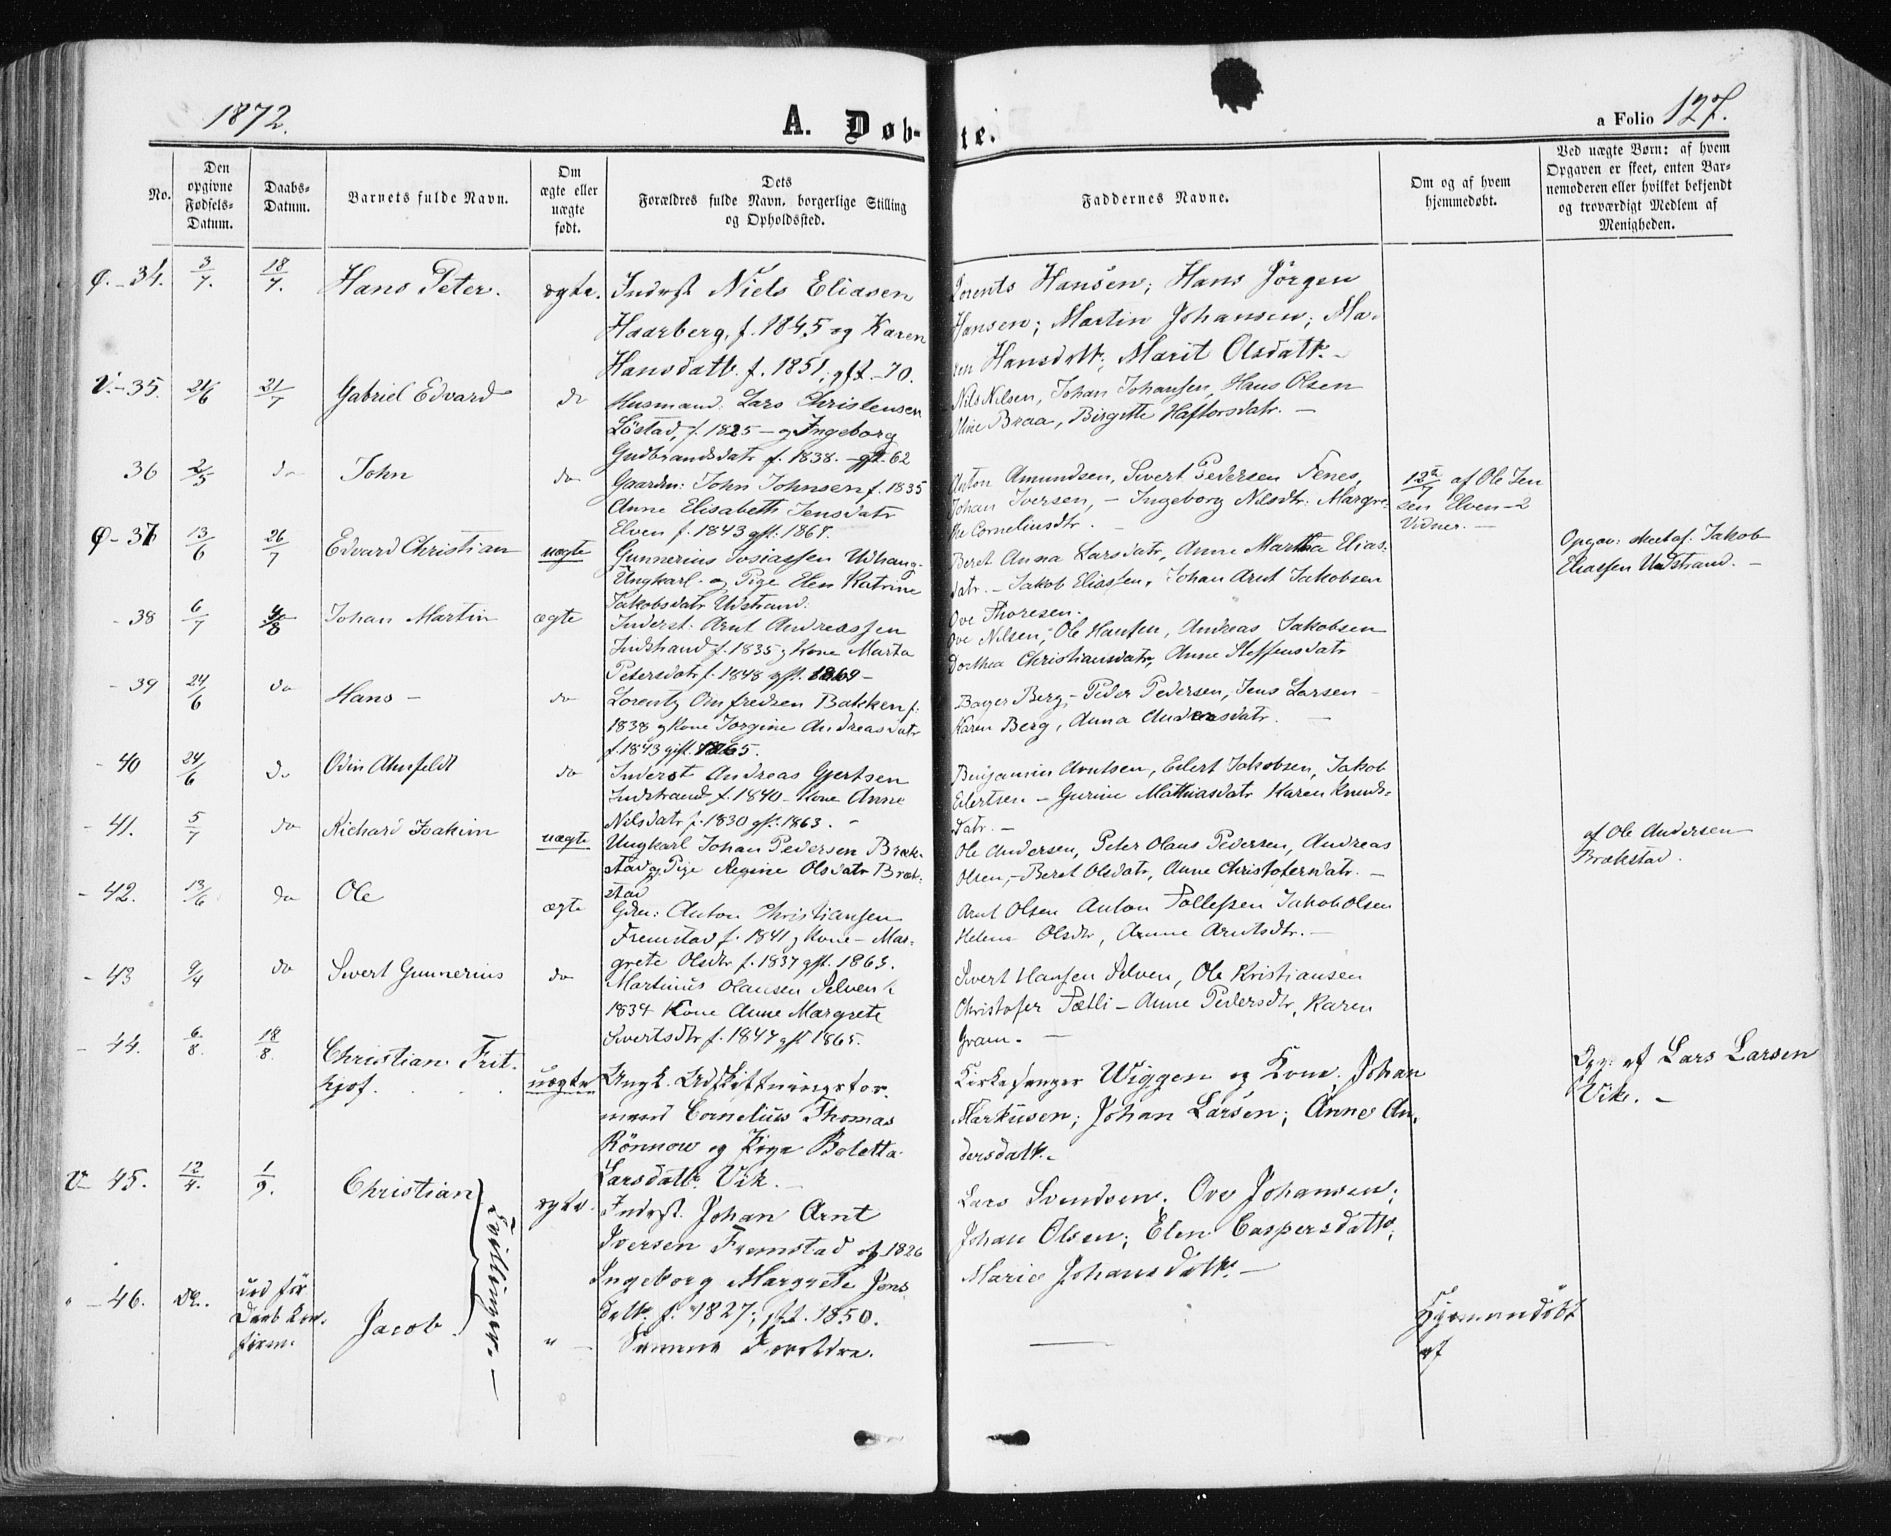 1872.
A. Døb-
te.
a Folio 127.
No.
Den
opgivne
Fødsels-
Datum.
Daabs-
Datum.
Barnets fulde Navn.
Om
ægte eller
uægte
født.
Dets
Forældres fulde Navn, borgerlige Stilling
og Opholdssted.
Faddernes Navne.
Om og af hvem
hjemmedøbt.
Ved uægte Børn: af hvem
Opgaven er skeet, enten Bar-
nemoderen eller hvilket bekjendt
og troværdigt Medlem af
Menigheden.
Ø. - 34. 3/7. 18/7. Hans Peter. ægte. Inderst Niels Eliasen
Haarberg, f. 1845 og Karen
Hansdattr. f. 1851, gft. -70.
Lorents Hansen; Hans Jörgen
Hansen; Martin Johansen; Ma-
ren Hansdattr; Marit Olsdattr. -
V. - 35. 24/6 21/7 Gabriel Edvard do Husmand. Lars Christensen
Löstad, f. 1825 - og Ingeborg
Gudbrandsdatr f. 1838. - gft. 62
Nils Nilsen, Johan Johansen, Hans Olsen
Oline Braa, Birgitte Haftorsdatr. -
36 2/5 do John do Gaardm: John Johnsen f. 1835
Anne Elisabeth Jensdatr
Elven f. 1843 gft. 1867.
Anton Amundsen, Sivert Pedersen Fenes,
Johan Iversen, - Ingeborg Nilsdtr. Margre-
the Corneliusdtr. -
12te/7 af Ole Jen
sen Elven - 2
Vidner. -
Ø - 37 13/6 26/7 Edvard Christian uægte Gunnerius Josiassen Udhaug
Ungkarl - og Pige Elen Katrine
Jakobsdatr Udstrand.
Beret Anna Larsdatr, Anne Martha Elias-
datr. - Jakob Eliassen, Johan Arnt Jakobsen
Ove Thoresen.
Opgav: skeet af. Jakob
Eliassen Udstrand. -
- 38 6/7 4/8 Johan Martin ægte Inderst. Arnt Andreassen
Indstrand f. 1835 og Kone Marta
Petersdatr f. 1848 gft. 1869 -
Ove Nilsen, Ole Hansen, Andreas Jakobsen
Dorthea Christiansdatr, Anne Steffensdatr
- 39 24/6 do Hans - do Lorentz Omfredsen Bakken f.
1838 og Kone Jorgine Andreasdatr
f. 1843 gift. 1865.
Bager Berg, - Peder Pedersen, Jens Larsen -
Karen Berg, Anna Andersdatr. -
- 40 24/6 do Odin Ahnfeldt do Inderst Andreas Gjertsen
Indstrand f. 1840 - Kone Anne
Nilsdatr f. 1830 gft. 1863. -
Benjamin Arntsen, Eilert Jakobsen, Jakob
Eilertsen - Gurine Mathiasdatr Karen Knuds-
datr. -
- 41. 5/7 do Richard Joakim uægte Ungkarl Johan Pedersen Bræk-
stad og Pige Regine Olsdatr Bræk-
stad
Ole Andersen, Peter Olaus Pedersen, Andreas
Olsen, - Beret Olsdatr, Anne Christofersdatr. -
af Ole Andersen
Brækstad.
- 42. 13/6 do Ole ægte Gdm: Anton Christiansen
Fremstad f. 1841 og Kone - Mar-
grete Olsdtr f. 1837 gft. 1863.
Arnt Olsen Anton Tollefsen Jakob Olsen
Helene Olsdtr, Anne Arntsdtr. -
- 43 9/4 do Sivert Gunnerius do Martinus Olausen Selven f.
1834 Kone Anne Margrete
Sivertsdtr f. 1847 gft 1865.
Sivert Hansen Selven, Ole Kristiansen
Christofer Sætli - Anne Pedersdtr, Karen
Gram. -
- 44. 6/8. 18/8. Christian Frit-
hjof. uægte Ungk. Udskiftningsfor-
mand Cornelius Thomas
Rönnow og Pige Boletta
Larsdattr. Vik. -
Kirkesanger Wiggen og Kone, Johan
Markusen; Johan Larsen; Anne An-
dersdattr.
Opg: af Lars Larsen
Vik. -
V - 45. 12/4. 1/9. Christian ægte. Inderst. Johan Arnt
Iversen Fremstad f. 1826
Ingeborg Margrete Jens
dattr. f. 1827; gft. 1850.
Lars Svendsen, Ove Johansen;
Johan Olsen; Elen Caspersdattr;
Marie Johansdattr. -
Tvillinger. -
" - 46. Do. ved før
Daab Kon-
firm. Jacob. " - Samme Forældre.
Hjemmedöbt
af